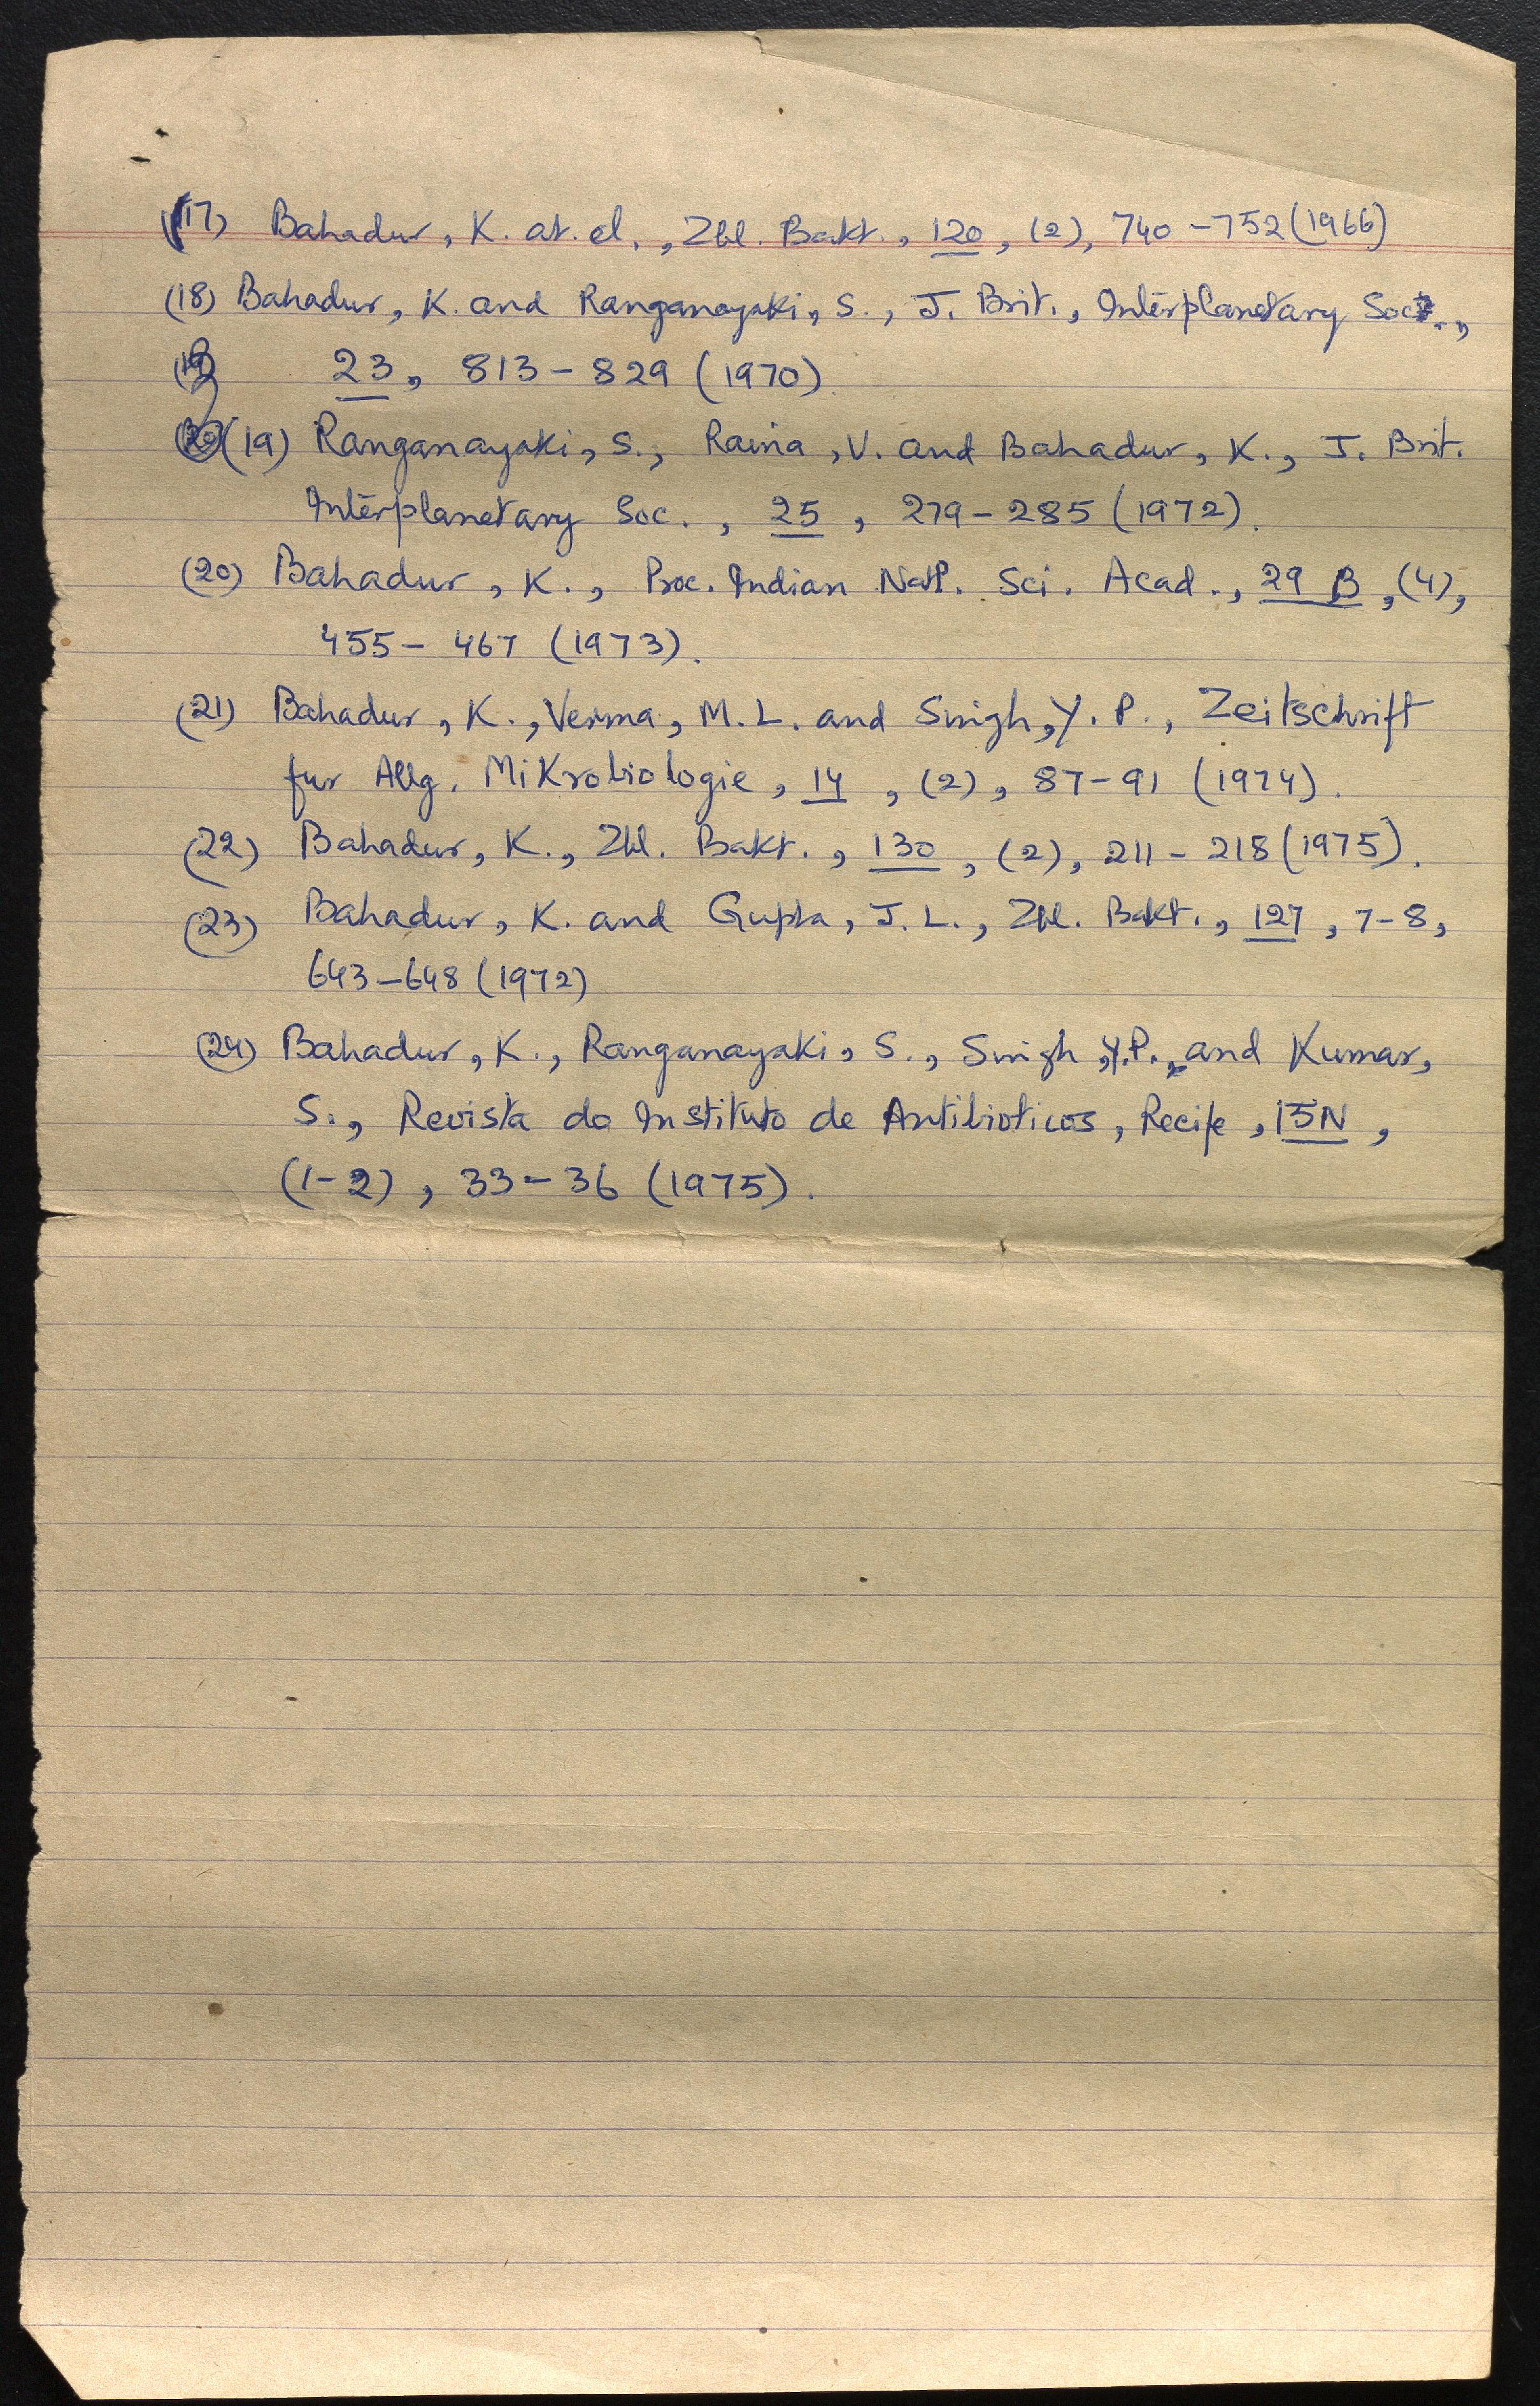 (17) Bahadur, K. at. el., Zbl. Bakt., 120, (2), 740-752 (1966)
(18) Bahadur, K. and Ranganayaki, S., J. Brit., Interplanetary Soc.,
23, 813-829 (1970)
(19) Ranganayaki, S., Raina, V. and Bahadur, K., J. Brit.
Interplanetary Soc., 25, 279-285 (1972).
(20) Bahadur, K., Proc. Indian Natl. Sci. Acad., 29 B, (4),
455-467 (1973).
(21) Bahadur, K., Verma, M.L. and Singh, Y.P., Zeitschrift
fur Allg. Mikrobiologie, 14, (2), 87-91 (1974).
(22) Bahadur, K., Zbl. Bakt., 130, (2), 211-218 (1975).
(23) Bahadur, K. and Gupta, J.L., Zbl. Bakt., 127, 7-8,
643-648 (1972)
(24) Bahadur, K., Ranganayaki, S., Singh, Y.P., and Kumar,
S., Revista do Instituto de Antibioticos, Recife, 15N,
(1-2), 33-36 (1975).